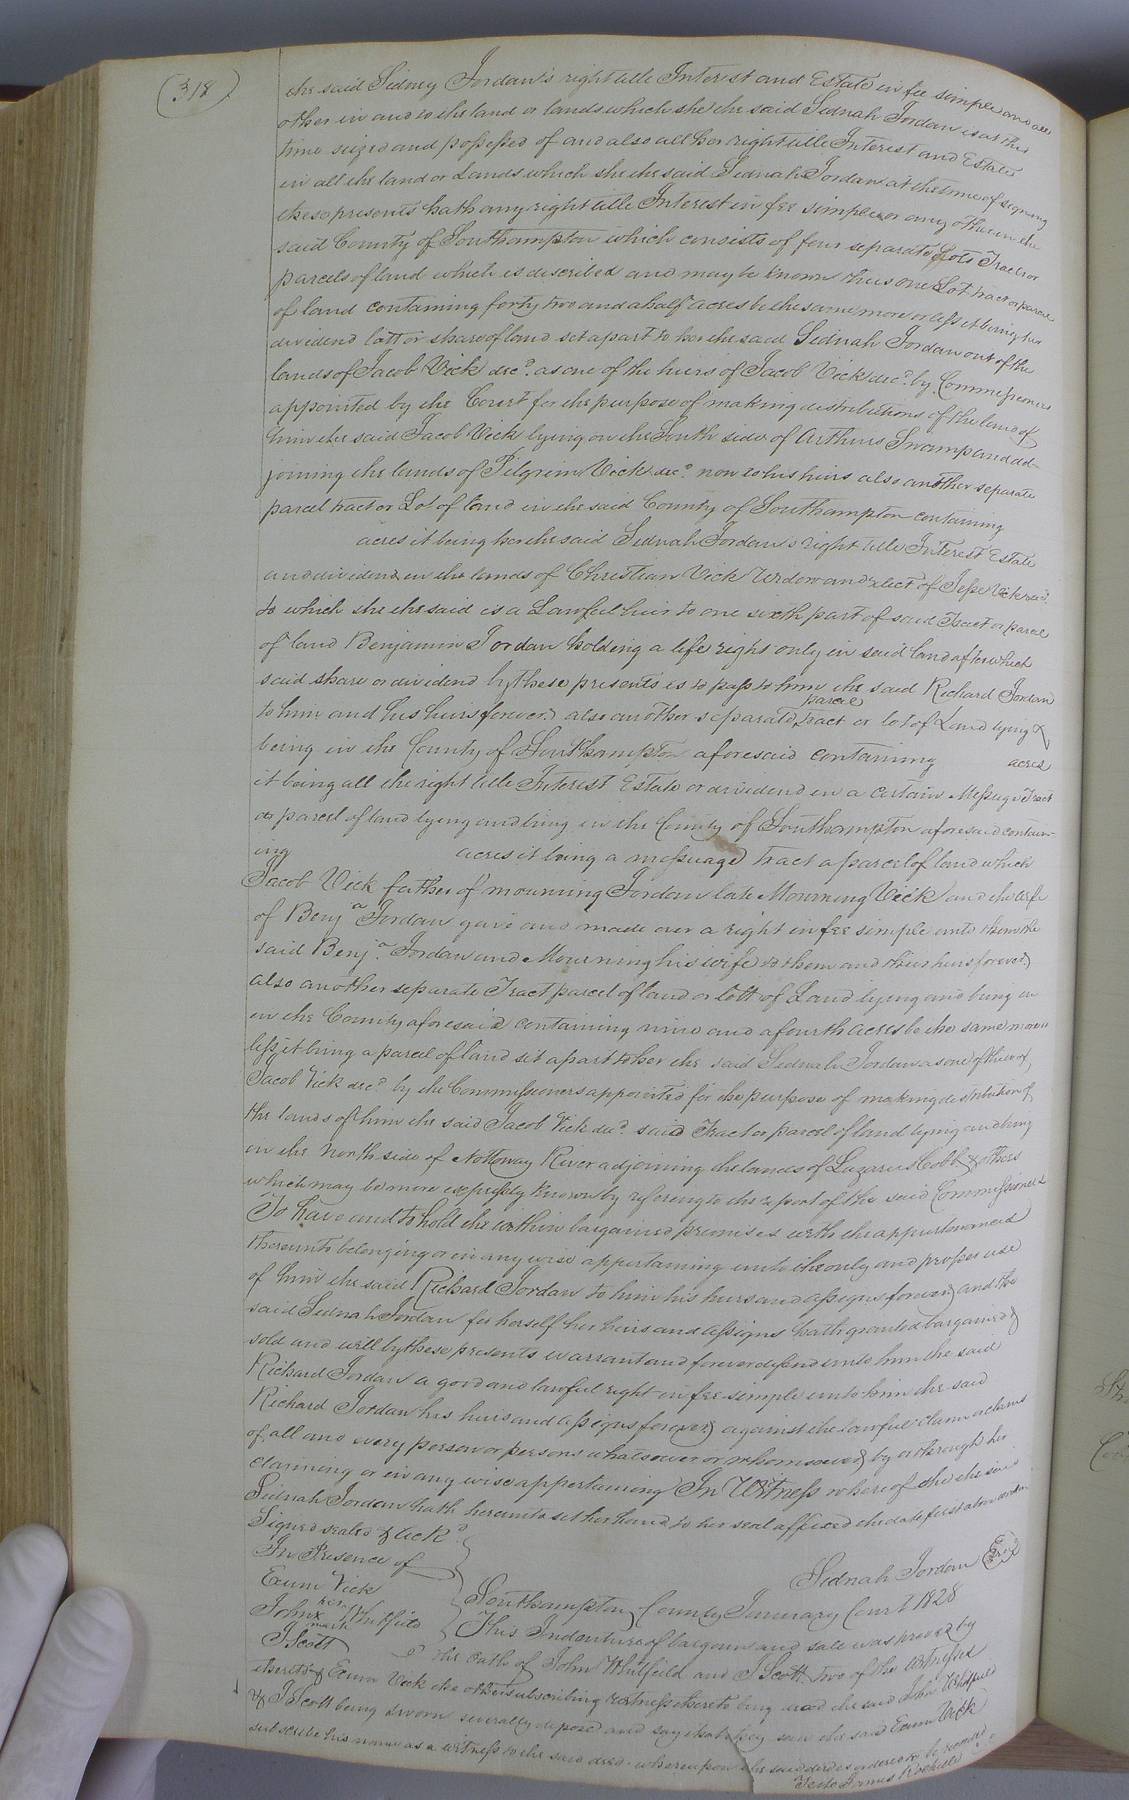 (318)
the said Sidney Jordan's right title Interest and Estate in fee simple and all
other in and to the land or lands which she the said Sidnah Jordan is at this
time seized and possessed of and also all her right title Interest and Estate
in all the land or Lands which she the said Sidnah Jordan at the time of signing
these presents hath any right title Interest in fee simple or any other in the
said County of Southampton which consists of four separate Lots Tracts or
parcels of land which is described and may be known thus one Lot tract or parcel
of land containing forty two and a half acres be the same more or less it being her
dividend lott or share of land set apart to her the said Sidnah Jordan out of the
lands of Jacob Vick decd. as one of the heirs of Jacob Vick decd. by Commissioners
appointed by the Court for the purpose of making distributions of the land of
him the said Jacob Vick lying on the South side of Arthurs Swamp and ad-
joining the lands of Pilgrim Vick decd. now to his heirs also another separate
parcel tract or Lot of land in the said County of Southampton containing
acres it being her the said Sidnah Jordan's right title Interest Estate
and dividend in the lands of Christian Vick Widow and relect of Jesse Vick decd.
to which she the said is a Lawful heir to one sixth part of said Tract or parcel
of land Benjamin Jordan holding a life right only in said land after which
said share or dividend by these presents is to pass to him the said Richard Jordan
to him and his heirs forever also another separate parcel tract or lot of Land lying &
being in the County of Southampton aforesaid containing acres
it being all the right title Interest Estate or dividend in a certain Messuage Tract
or parcel of land lying and being in the County of Southampton aforesaid contain-
ing acres it being a messuage tract a parcel of land which
Jacob Vick father of mourning Jordan late Mourning Vick and the wife
of Benja Jordan gave and made over a right in fee simple unto them the
said Benja. Jordan and Mourning his wife to them and their heirs forever
also another separate Tract parcel of land or lott of Land lying and being in
in the County aforesaid containing nine and a fourth acres be the same more or
less it being a parcel of land set apart to her the said Sidnah Jordan as one of the heirs of
Jacob Vick decd by the Commissioners appointed for the purpose of making distribution of
the lands of him the said Jacob Vick decd. said Tract or parcel of land lying and being
on the North side of Nottoway River adjoining the lands of Lazarus Cobb & others
which may be more expressly known by refering to the report of the said Commissioners
To have and to hold the within bargained premises with the appurtenances
thereunto belonging or in any wise appertaining unto the only and proper use
of him the said Richard Jordan to him his heirs and assigns forever and the
said Sidnah Jordan for herself her heirs and assigns hath granted bargained &
sold and will by these presents warrant and forever defend unto him the said
Richard Jordan a good and lawful right in fee simple unto him the said
Richard Jordan his heirs and assigns forever against the lawful claim or claims
of all and every person or persons whatsoever or whomsoever by or through her
claiming or in any wise appertaining In Witness whereof she the said
Sidnah Jordan hath hereunto set her hand to her seal affixed the date first above written
Signed sealed & ackd.
In Presence of
Sidnah Jordan
Exum Vick
John his x mark Whitfield
J Scott
Southampton County January Court 1828
This Indenture of bargain and sale was proved by
the oaths of John Whitfield and J Scott two of the witnesses
thereto & Exum Vick the other subscribing witness thereto being dead the said John Whitfield
& J Scott being sworn severally deposed and say that they saw the said Exum Vick
subscribe his name as a witness to the said deed. whereupon the said deed is ordered to be recorded
Teste James Rochelle